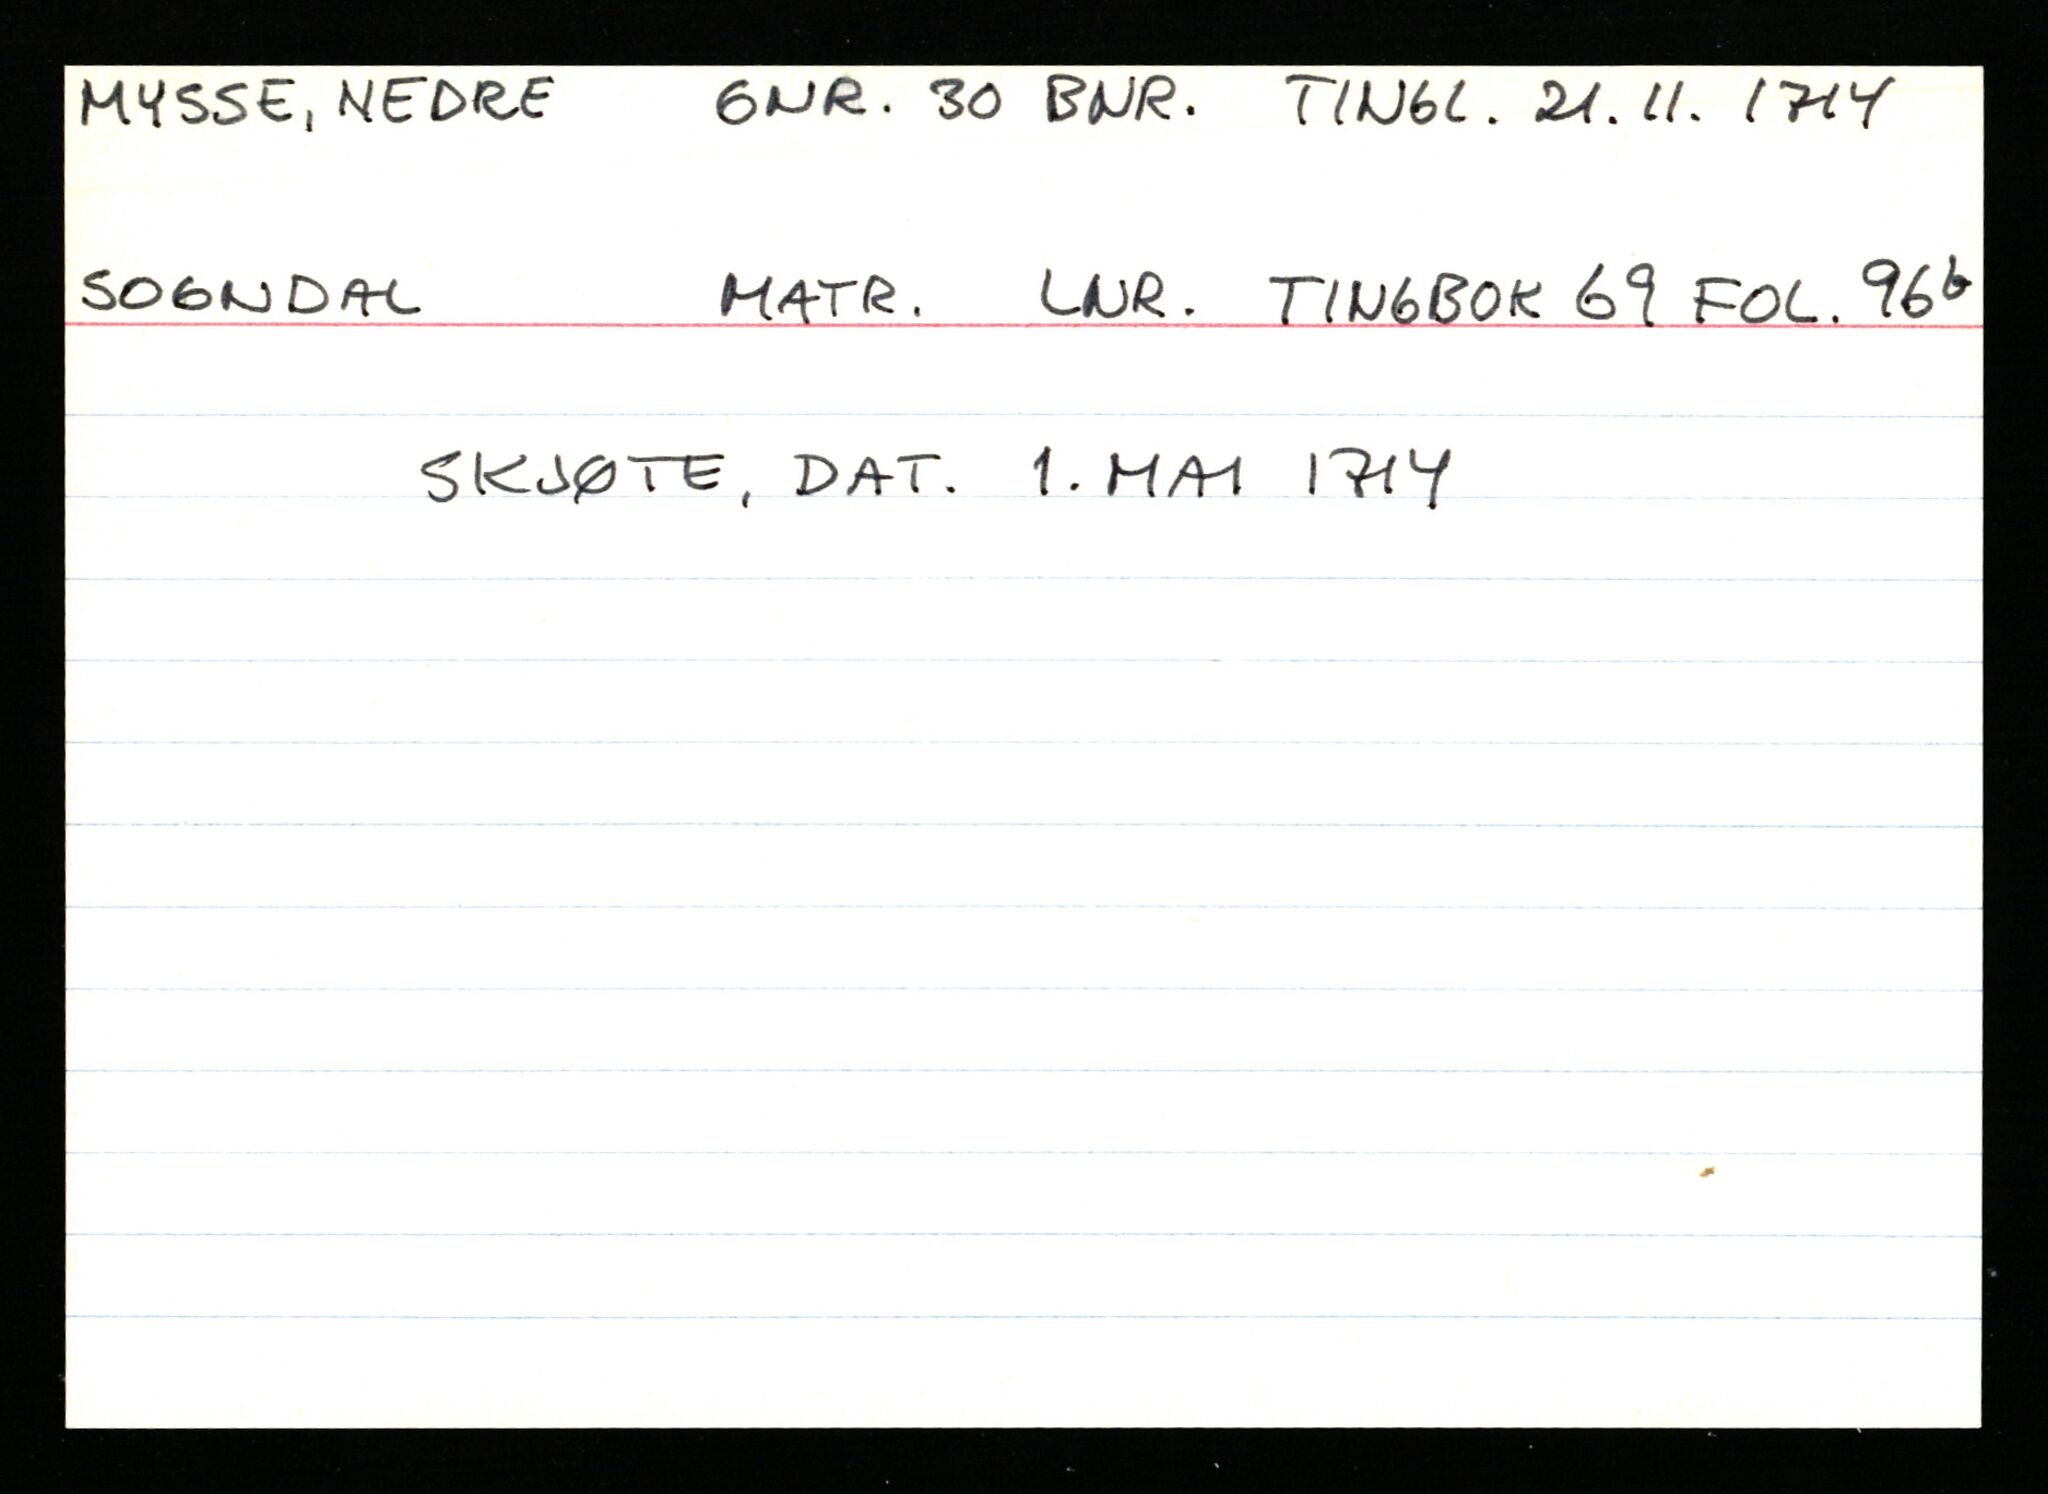 MYSSE, NEDRE GNR. 30 BNR. TINGL. 21. 11. 1714
SOGNDAL MATR. LNR. TINGBOK 69 FOL. 96b
SKJØTE, DAT. 1. MAI 1714